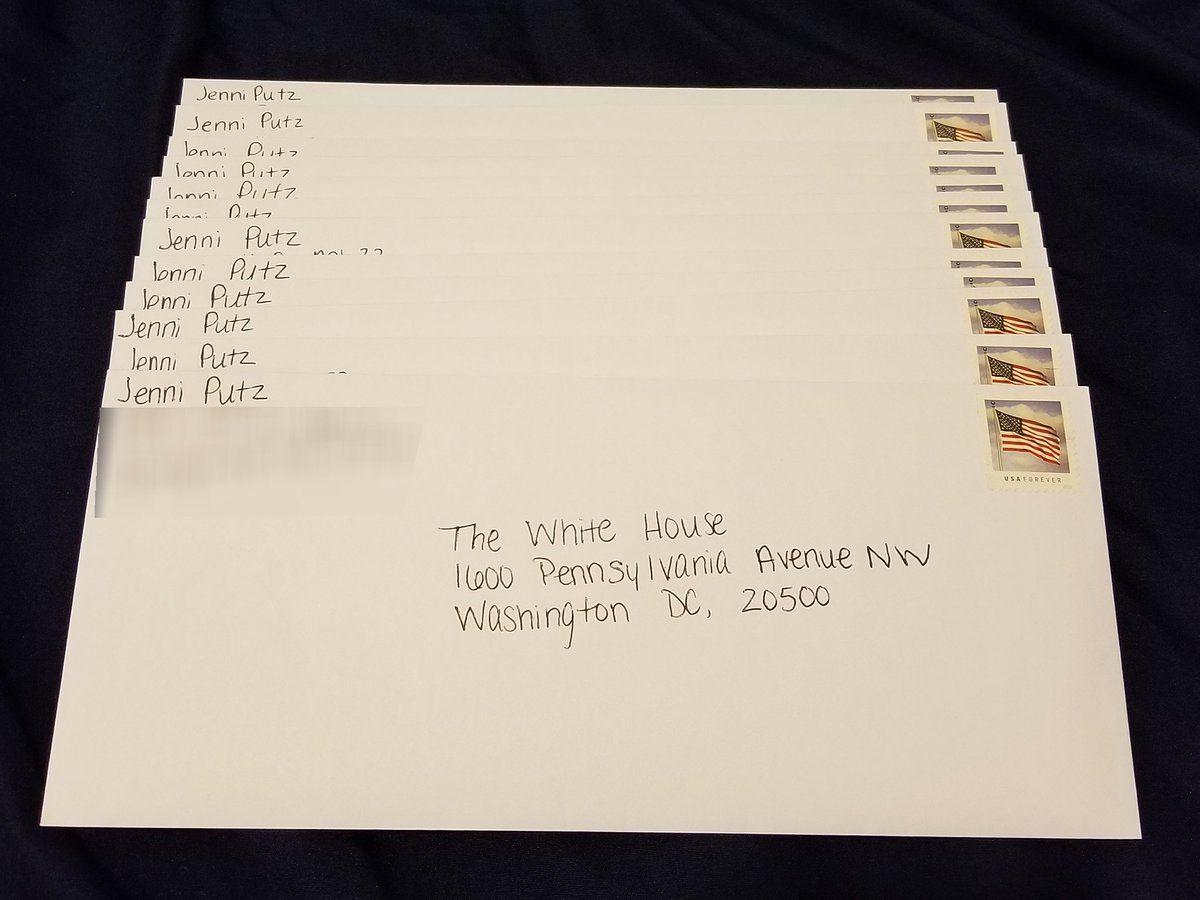 Jenni Putz
Jenni Putz
Jenni Putz
Jenni Putz
Jenni Putz
Jenni Putz
Jenni Putz
Jenni Putz
Jenni Putz
Jenni Putz
Jenni Putz
Jenni Putz
USA FOREVER
The White House
1600 Pennsylvania Avenue NW
Washington DC, 20500